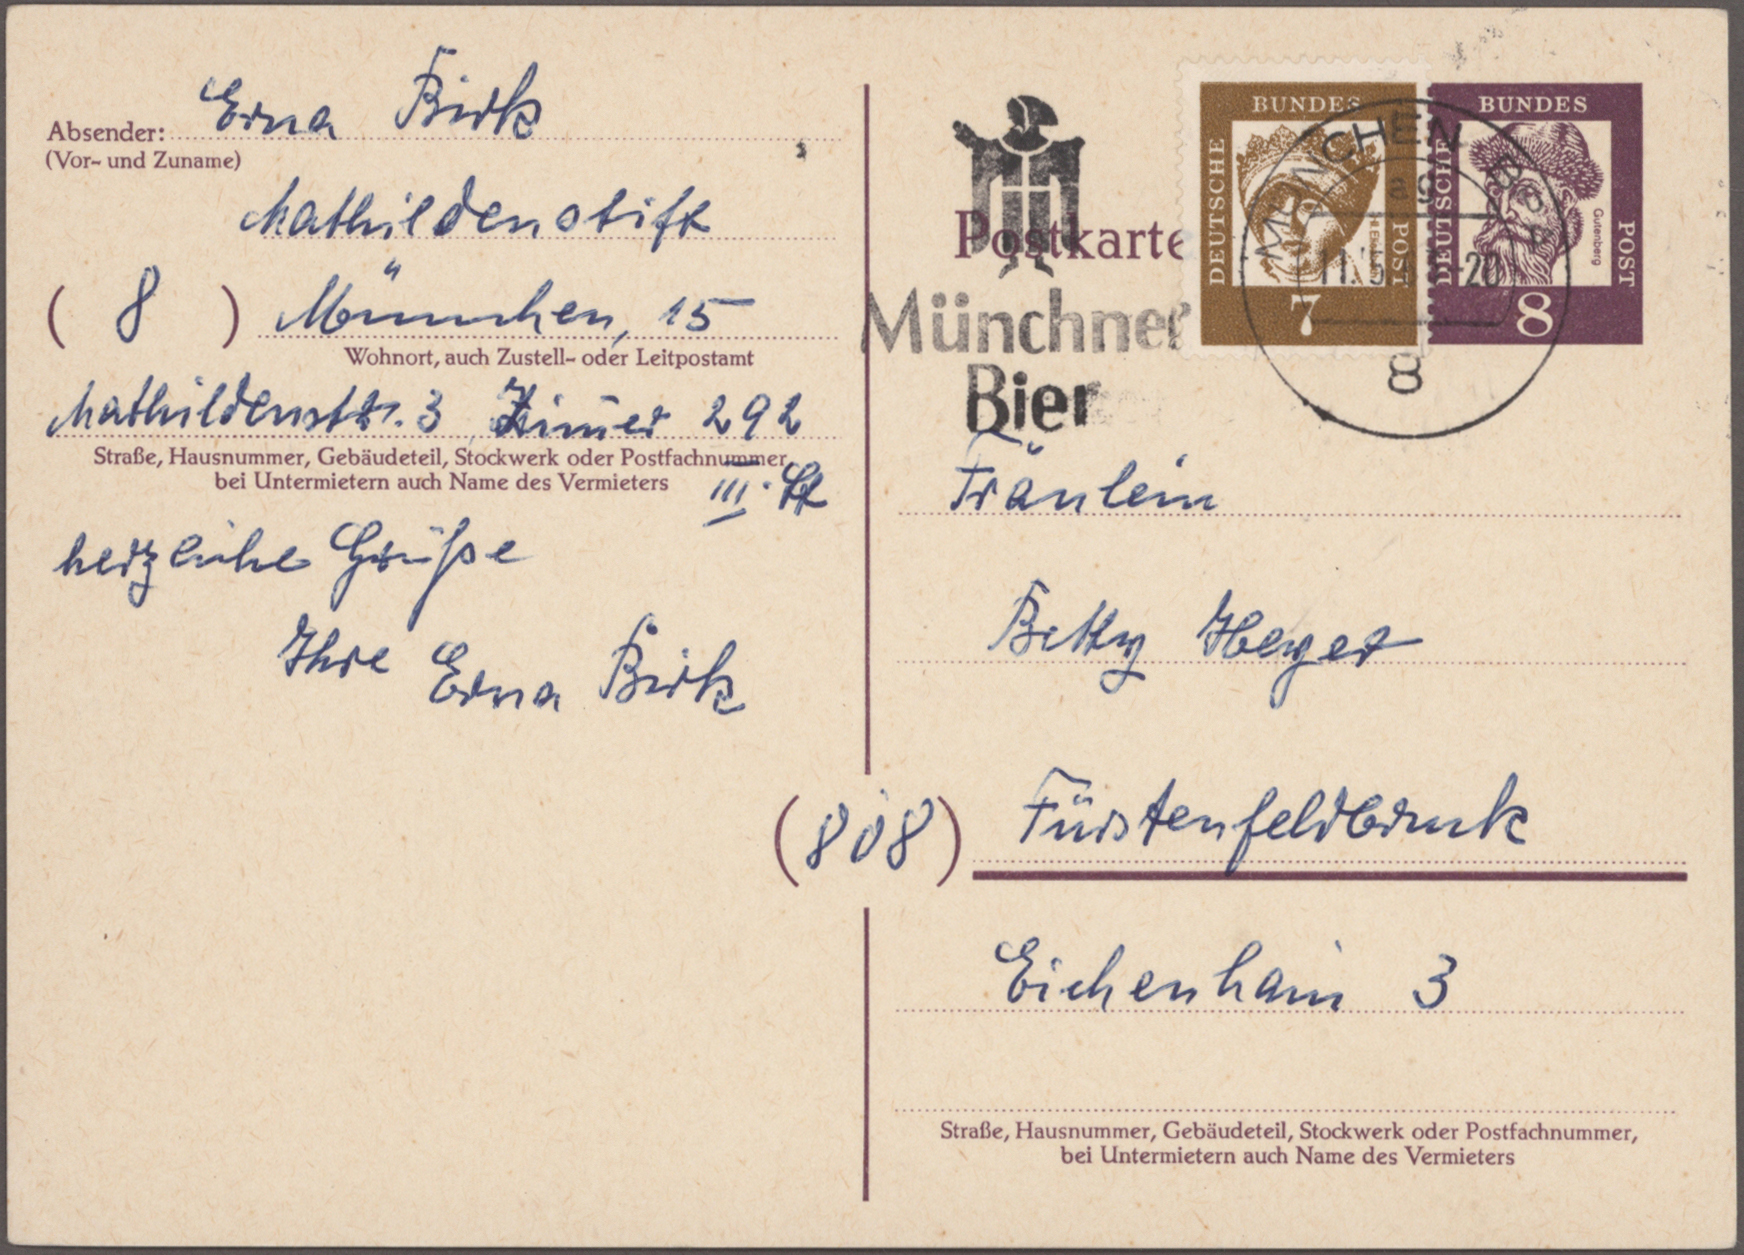 Absender: Erna Birk
(Vor- und Zuname)
Mathildenstift
( 8 ) München, 15
Wohnort, auch Zustell- oder Leitpostamt
Mathildenstr. 3, Zimmer 292
Straße, Hausnummer, Gebäudeteil, Stockwerk oder Postfachnummer,
bei Untermietern auch Name des Vermieters
III. St
herzliche Grüße
Ihre Erna Birk
Postkarte
Münchner
Bier
DEUTSCHE BUNDES POST
7
DEUTSCHE BUNDES POST
Gutenberg
8
MÜNCHEN
8
Fräulein
Betty Heyer
(808) Fürstenfeldbruck
Eichenhain 3
Straße, Hausnummer, Gebäudeteil, Stockwerk oder Postfachnummer,
bei Untermietern auch Name des Vermieters